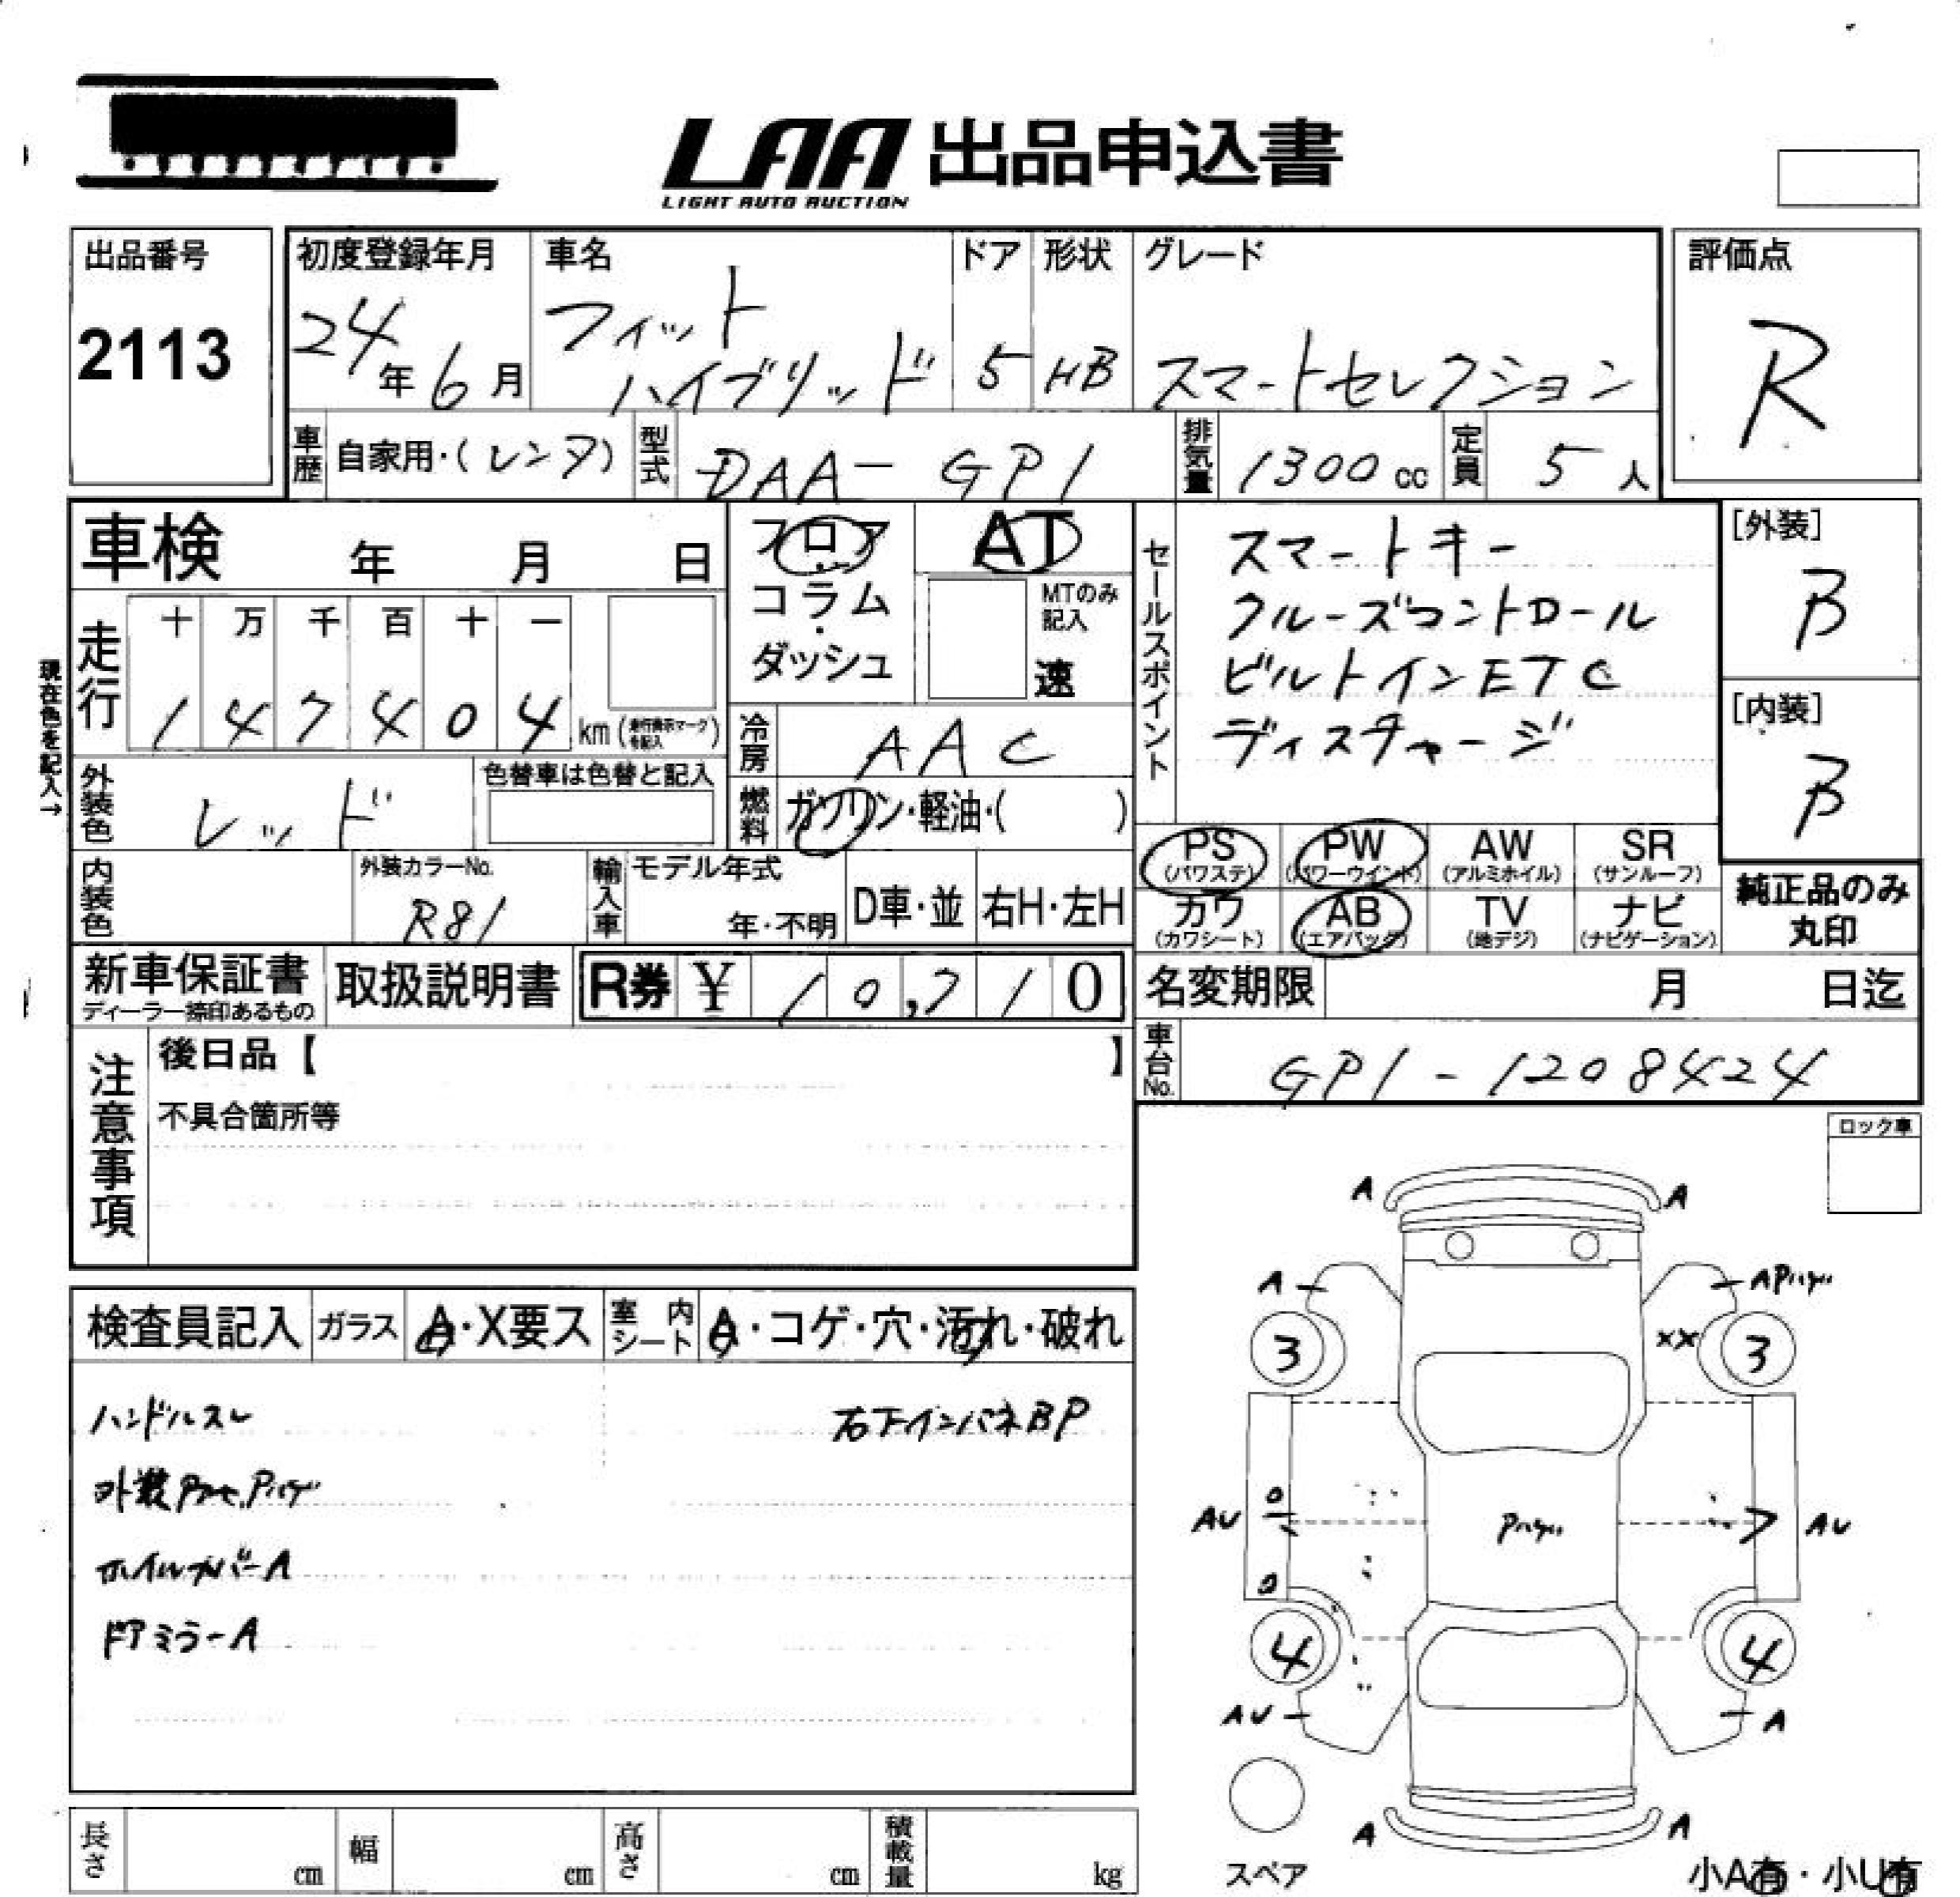 LAA 出品申込書
LIGHT AUTO AUCTION
出品番号
2113
初度登録年月
24年6月
車名
フィット
ハイブリッド
ドア
5
形状
HB
グレード
スマートセレクション
評価点
R
車歴 自家用・(レンタ)
型式 DAA-GP1
排気量 1300cc
定員 5人
車検 年 月 日
フロア・コラム・ダッシュ
AT
MTのみ記入
速
セールスポイント
スマートキー
クルーズコントロール
ビルトインETC
ディスチャージ
[外装]
B
[内装]
B
現在色を記入→
走行
十 万 千 百 十 一
1 4 7 4 0 4 km
冷房 AAC
外装色 レッド
色替車は色替と記入
燃料 ガソリン・軽油・( )
PS (パワステ)
PW (パワーウインド)
AW (アルミホイル)
SR (サンルーフ)
カワ (カワシート)
AB (エアバック)
TV (地デジ)
ナビ (ナビゲーション)
純正品のみ丸印
内装色
外装カラーNo.
R81
輸入車
モデル年式
年・不明
D車・並
右H・左H
新車保証書
ディーラー捺印あるもの
取扱説明書
R券 ¥ 10,710
名変期限 月 日迄
車台No. GP1-1208424
注意事項
後日品【 】
不具合箇所等
ロック車
検査員記入
ガラス A・X要ス
室内シート A・コゲ・穴・汚れ・破れ
ハンドルスレ
右下インパネBP
ホイルカバーA
ドアミラーA
A A
A A
3 XX 3
AU AU
4 4
AU A
A A
スペア
小A有・小U有
長さ cm
幅 cm
高さ cm
積載量 kg